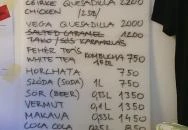 CSIRKE QUESADILLA 2200
CHICKEN /25B/
VEGA QUESADILLA 2000
SALTED CARAMEL 1200
FEHÉR TEJÍS
WHITE TEA 750
HORCHATA 750
SZÓDA (SODA) 1L 750
SÖR (BEER) 0,5L 1350
VERMUT 0,1L 1350
MAKAVA 0,33L 1450
COCA COLA 0,25L 850